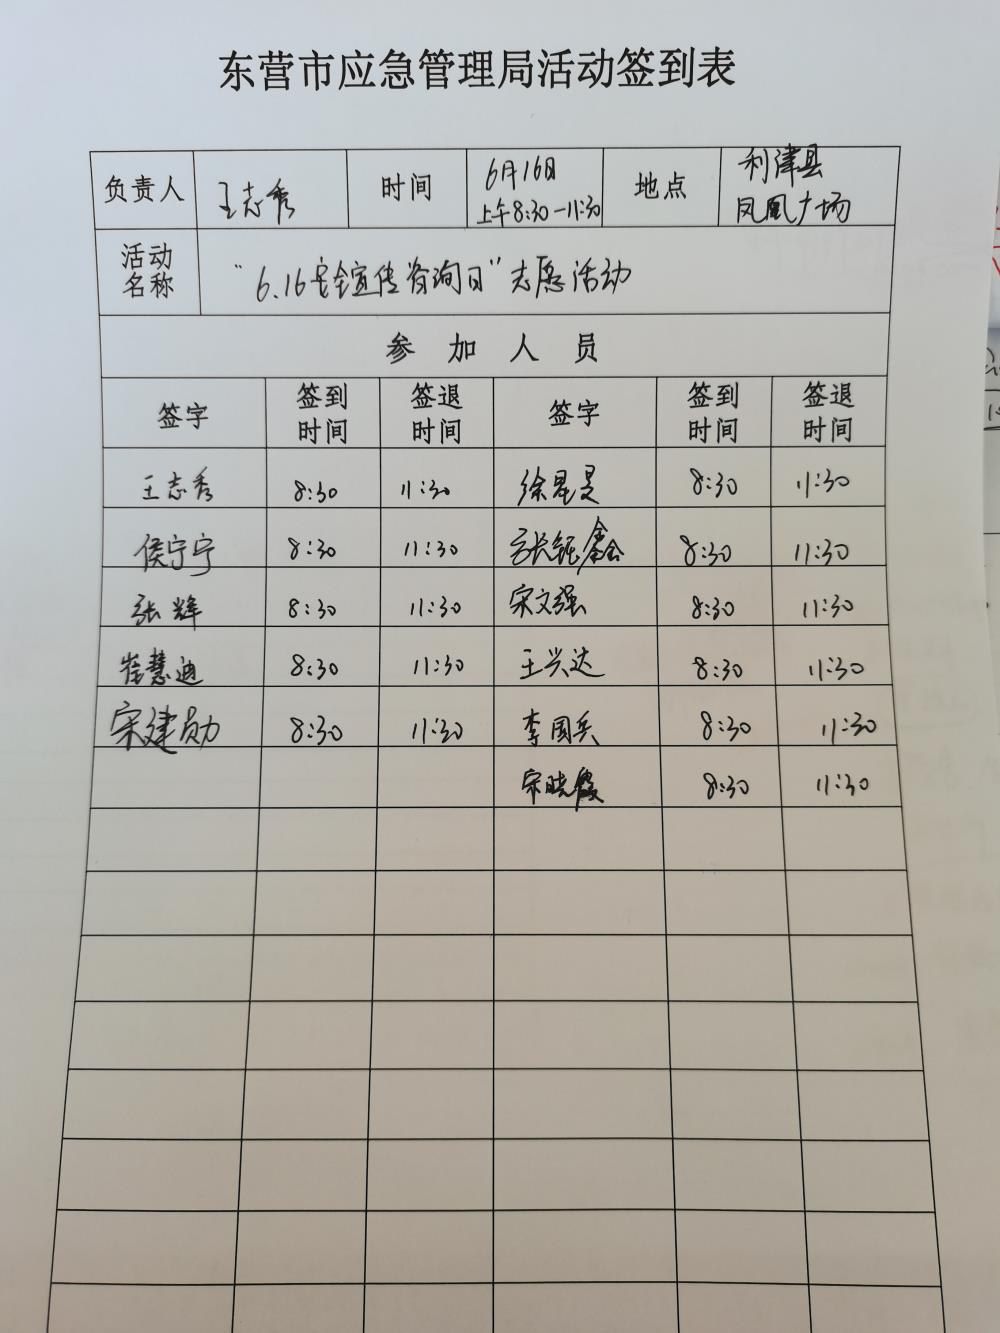 东营市应急管理局活动签到表
负责人 王志秀 时间 6月16日 上午8:30-11:30 地点 利津县 凤凰广场
活动名称 “6.16安全宣传咨询日”志愿活动
参加人员
签字 签到时间 签退时间 签字 签到时间 签退时间
王志秀 8:30 11:30 徐星昊 8:30 11:30
侯宁宁 8:30 11:30 张钰鑫 8:30 11:30
张辉 8:30 11:30 宋文强 8:30 11:30
崔慧迪 8:30 11:30 王兴达 8:30 11:30
宋建勋 8:30 11:30 李国兵 8:30 11:30
宋晓霞 8:30 11:30